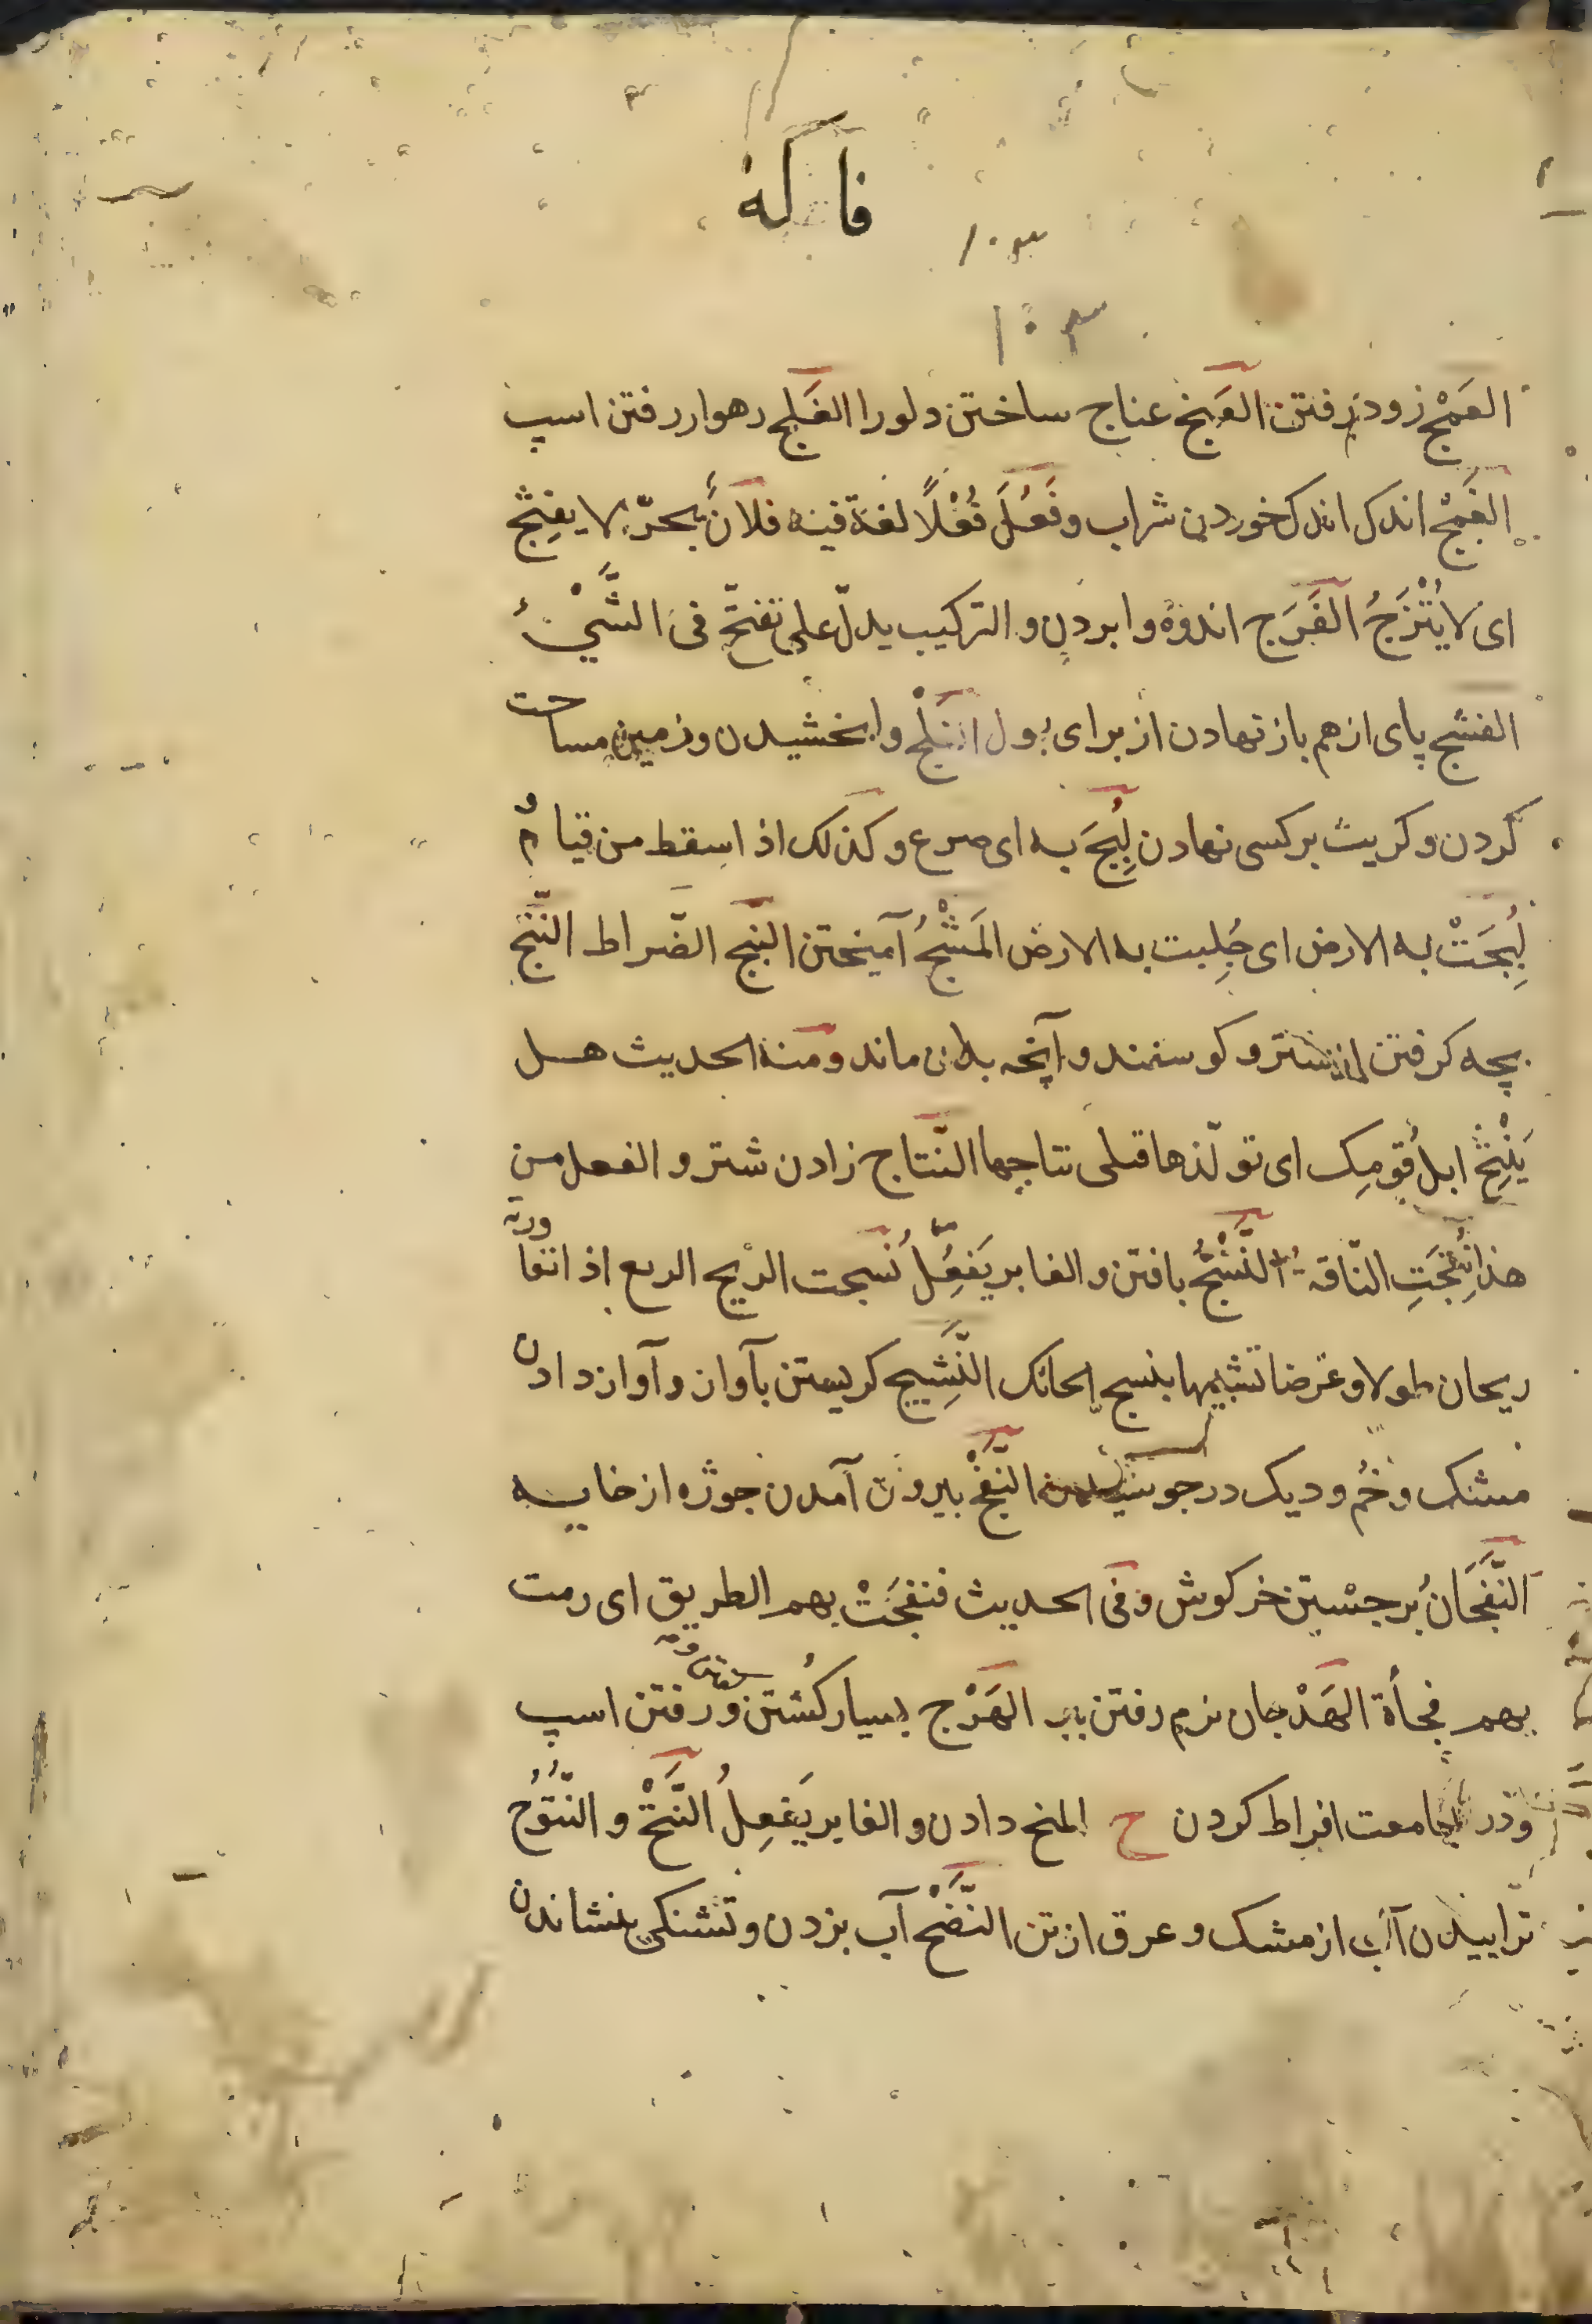 فاكه
۱۰۳
۱۰۳
العَمْج زود رفتن العَنج عناج ساختن دلو را الغَلج رهوار رفتن اسپ
الغَمْج اندک اندک خوردن شراب وفَعُلَ فُعْلًا لغة فیه فلانٌ بحرّ لا یفثِج
ای لا یُنْزَحُ الفَرَج اندوه وابردن والترکیب یدلّ علی تفتّح فی الشَّیْء
الفشج پای از هم باز نهادن از برای بول الفَلْج وابخشیدن وزمین مساحت
کردن وکزیت برکسی نهادن لُبِجَ به ای صرع وکذلک اذا سقط من قیامٌ
لُبِجَتْ به الارض ای جُلِبت به الارض المَشْجُ آمیختن النبج الضّراط النَّتْج
بچه کرفتن از شتر وکوسفند وآنچه بدان ماند ومنه الحدیث هـل
یَنْتِجُ ابل قومک ای تولّدها فتلی نتاجها النّتاج زادن شتر والفعل من
هذا نُتِجَتِ النّاقة النَّسْجُ بافتن والغابر یَفعِلُ نسجت الریح الربع اذا تعاورته
ریحان طولا وعرضا تشبیها بنسج الحائک النَّشِیج کریستن بآواز وآواز دادن
مشک وخُم ودیک در جوشیدن النَّفْج بیرون آمدن جوژه از خایـه
النَّفَجَانُ برجستن خرکوش وفی الحدیث فنفجَتْ بهم الطریق ای رمت
بهم فجأة الهَدْجان نرم رفتن پیر الهَرْج بسیار کُشتن ورفتن اسپ
ودر مجامعت افراط کردن ح المنح دادن والغابر یَفعِلُ النَّتْحُ والنُّتُوُح
ترابیدن آب از مشک وعرق از تن النَّضْح آب بزدن وتشنکی بنشاندن